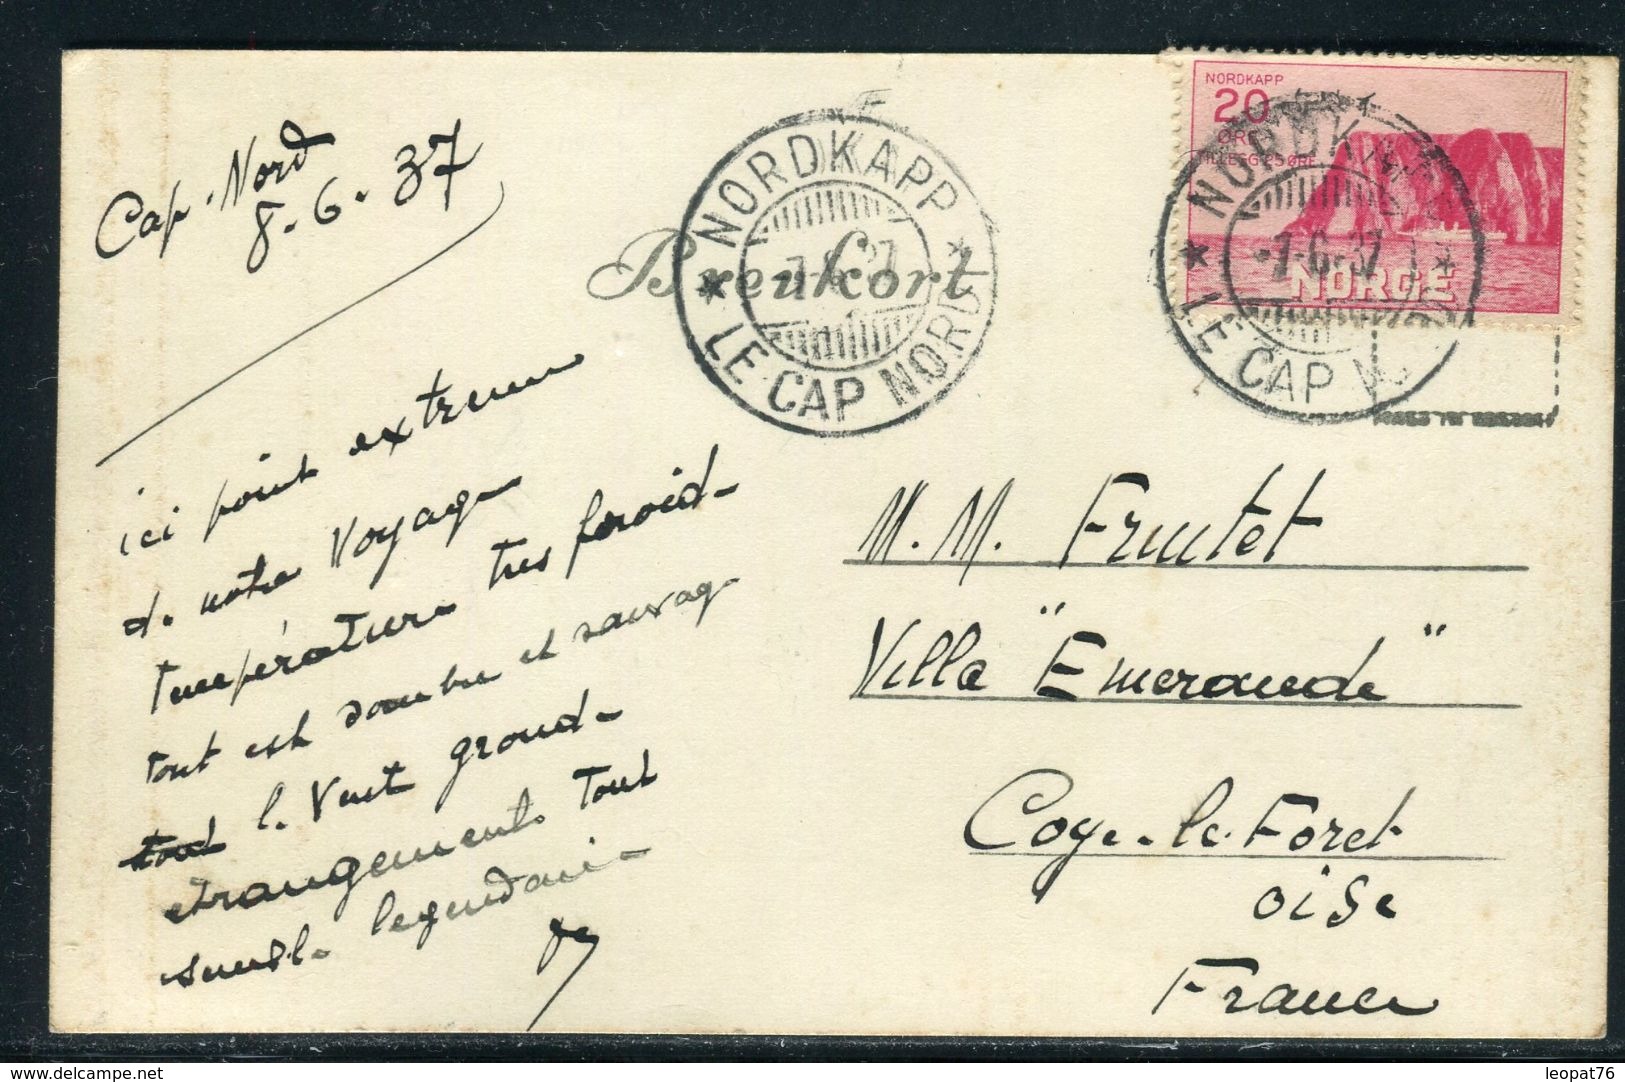 Cap-Nord
8-6-37
ici point extreme
de notre voyage
température tres froide
tout est sombre et sauvage
tout le vent gronde
etrangement tout
semble legendaire
Brevkort
NORDKAPP
7-6-37
LE CAP NORD
NORDKAPP
20
ØRE
TILLEGG 25 ØRE
NORGE
NORDKAPP
-7-6-37
LE CAP NORD
M. M. Frutet
Villa "Emeraude"
Coye-le-Foret
oise
France
delcampe.net
leopat76